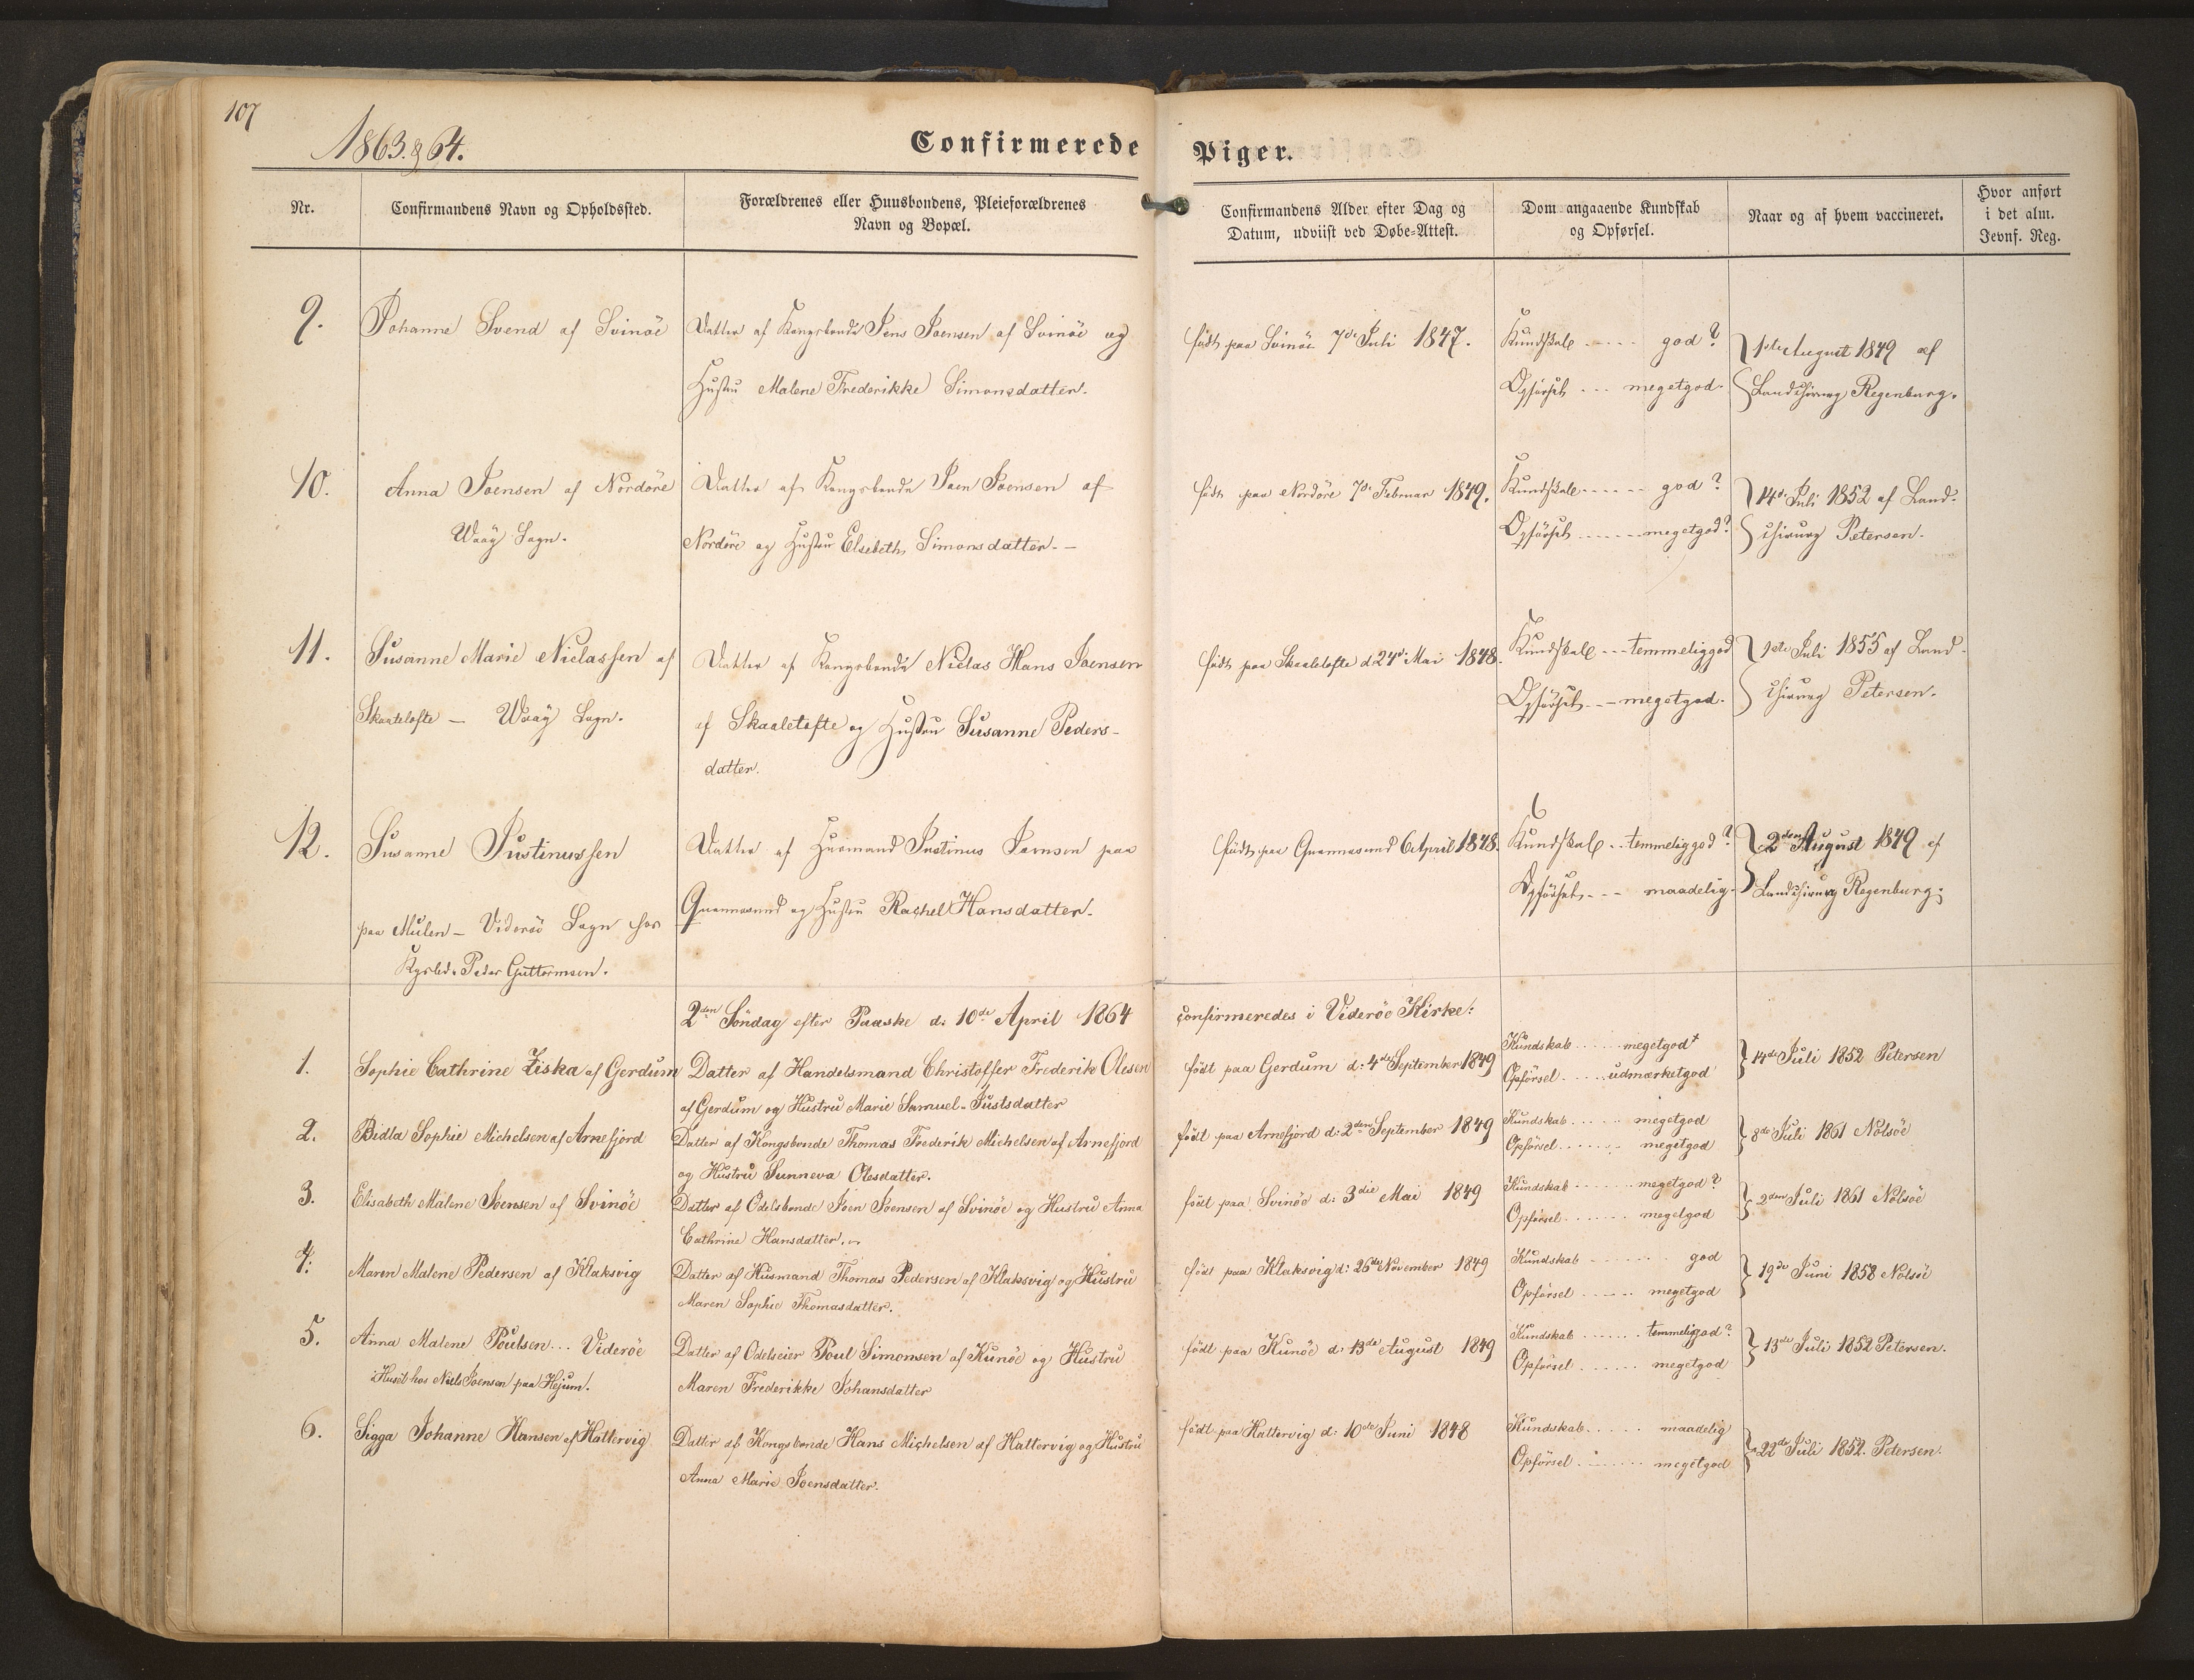 107
1863. & 64.
Confirmerede Piger.
Nr.
Confirmandens Navn og Opholdssted.
Forældrenes eller Huusbondens, Pleieforældrenes
Navn og Bopæl.
Confirmandens Alder efter Dag og
Datum, udviist ved Døbe-Attest.
Dom angaaende Kundskab
og Opførsel.
Naar og af hvem vaccineret.
Hvor anført
i det alm.
Jevnf. Reg.
9.
Johanne Svend af Svinöe
Datter af Kongsbonde Jens Joensen af Svinöe og
Hustru Malene Frederikke Simonsdatter.
født paa Svinöe 7de Juli 1847.
Kundskab ..... god?
Opførsel ... megetgod.
1ste August 1849 af
Landchirurg Regenburg.
10.
Anna Joensen af Nordöre
Waaÿ Sogn.
Datter af Kongsbonde Joen Joensen af
Nordöre og Hustru Elsebeth Simonsdatter. –
født paa Nordöre 7de Februar 1849.
Kundskab ...... god?
Opførsel ...... megetgod?
14de Juli 1852 af Land-
chirurg Petersen.
11.
Susanne Marie Niclassen af
Skaaletofte – Waaÿ Sogn.
Datter af Kongsbonde Niclas Hans Joensen
af Skaaletofte og Hustru Susanne Peders-
datter.
født paa Skaaletofte d. 24de Mai 1848.
Kundskab ... temmeliggod
Opførsel ... megetgod.
Juli 1855 af Land-
chirurg Petersen.
12.
Susanne Justinussen
paa Mulen – Videröe Sogn hos
Kgsbd. Peder Guttormsen.
Datter af Huusmand Justinus Joensen paa
Quannasund og Hustru Rachel Hansdatter.
født paa Quannasund 6 April 1848.
Kundskab .. temmeliggod?
Opførsel ... maadelig.
2den August 1849 af
Landchirurg Regenburg.
2den Söndag efter Paaske d: 10de April 1864 confirmeredes i Viderøe Kirke:
1.
Sophie Cathrine Ziska af Gerdum
Datter af Handelsmand Christoffer Frederik Olesen
af Gerdum og Hustru Marie Samuel-Justsdatter
født paa Gerdum d: 4de September 1849
Kundskab ..... megetgod+
Opförsel ..... udmærketgod
14de Juli 1852 Petersen
2.
Bidla Sophie Michelsen af Arnefjord
Datter af Kongsbonde Thomas Frederik Michelsen af Arnefjord
og Hustru Sunneva Olesdatter.
født paa Arnefjord d: 2den September 1849
Kundskab ...... megetgod
Opförsel ...... megetgod
8de Juli 1861 Nolsöe
3.
Elisabeth Malene Joensen af Svinöe
Datter af Odelsbonde Joen Joensen af Svinöe og Hustru Anna
Cathrine Hansdatter.
født paa Svinöe d: 3die Mai 1849
Kundskab ...... megetgod?
Opförsel ...... megetgod
2den Juli 1861 Nolsöe
4.
Maren Malene Pedersen af Klaksvig
Datter af Husmand Thomas Pedersen af Klaksvig og Hustru
Maren Sophie Thomasdatter.
født paa Klaksvig d: 26de November 1849
Kundskab ....... god
Opförsel ...... megetgod
19de Juni 1858 Nolsöe
5.
Anna Malene Poulsen... Viderøe
i Huset hos Niels Joensen paa Hejum.
Datter af Odelseier Poul Simonsen af Kunöe og Hustru
Maren Frederikke Johansdatter
født paa Kunöe d: 13de August 1849
Kundskab ...... temmeliggod?
Opförsel ...... megetgod
13de Juli 1852 Petersen.
6.
Sigga Johanne Hansen af Hattervig
Datter af Kongsbonde Hans Michelsen af Hattervig og Hustru
Anna Marie Joensdatter.
født paa Hattervig d: 10de Juni 1848
Kundskab ..... maadelig
Opförsel ....... megetgod
22de Juli 1852. Petersen.